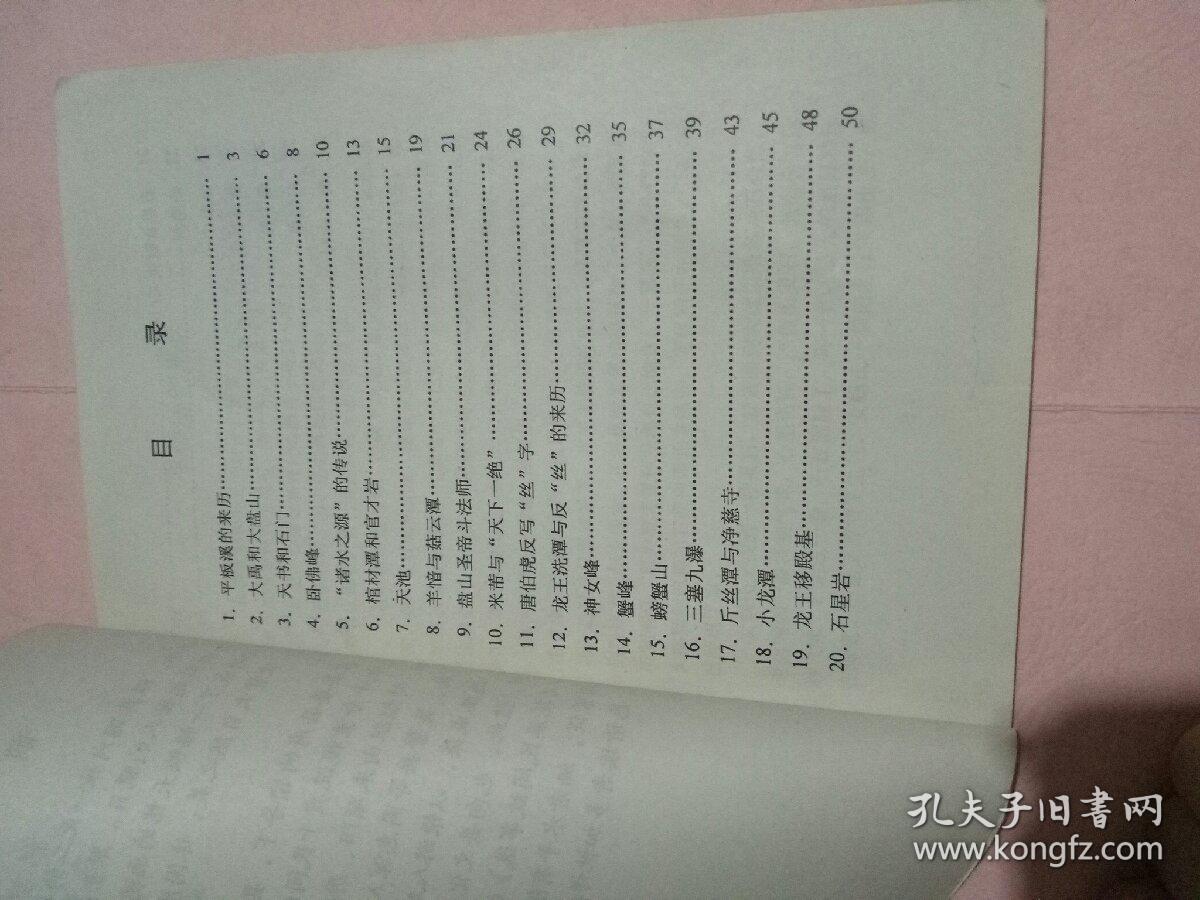 目 录
1. 平板溪的来历…………………………1
2. 大禹和大盘山…………………………3
3. 天书和石门…………………………6
4. 卧佛峰…………………………8
5. “诸水之源”的传说…………………………10
6. 棺材潭和官才岩…………………………13
7. 天池…………………………15
8. 羊愔与菇云潭…………………………19
9. 盘山圣帝斗法师…………………………21
10. 米芾与“天下一绝”…………………………24
11. 唐伯虎反写“丝”字…………………………26
12. 龙王洗潭与反“丝”的来历…………………………29
13. 神女峰…………………………32
14. 蟹峰…………………………35
15. 螃蟹山…………………………37
16. 三塞九瀑…………………………39
17. 斤丝潭与净慈寺…………………………43
18. 小龙潭…………………………45
19. 龙王移殿基…………………………48
20. 石星岩…………………………50
孔夫子旧書网
www.kongfz.com